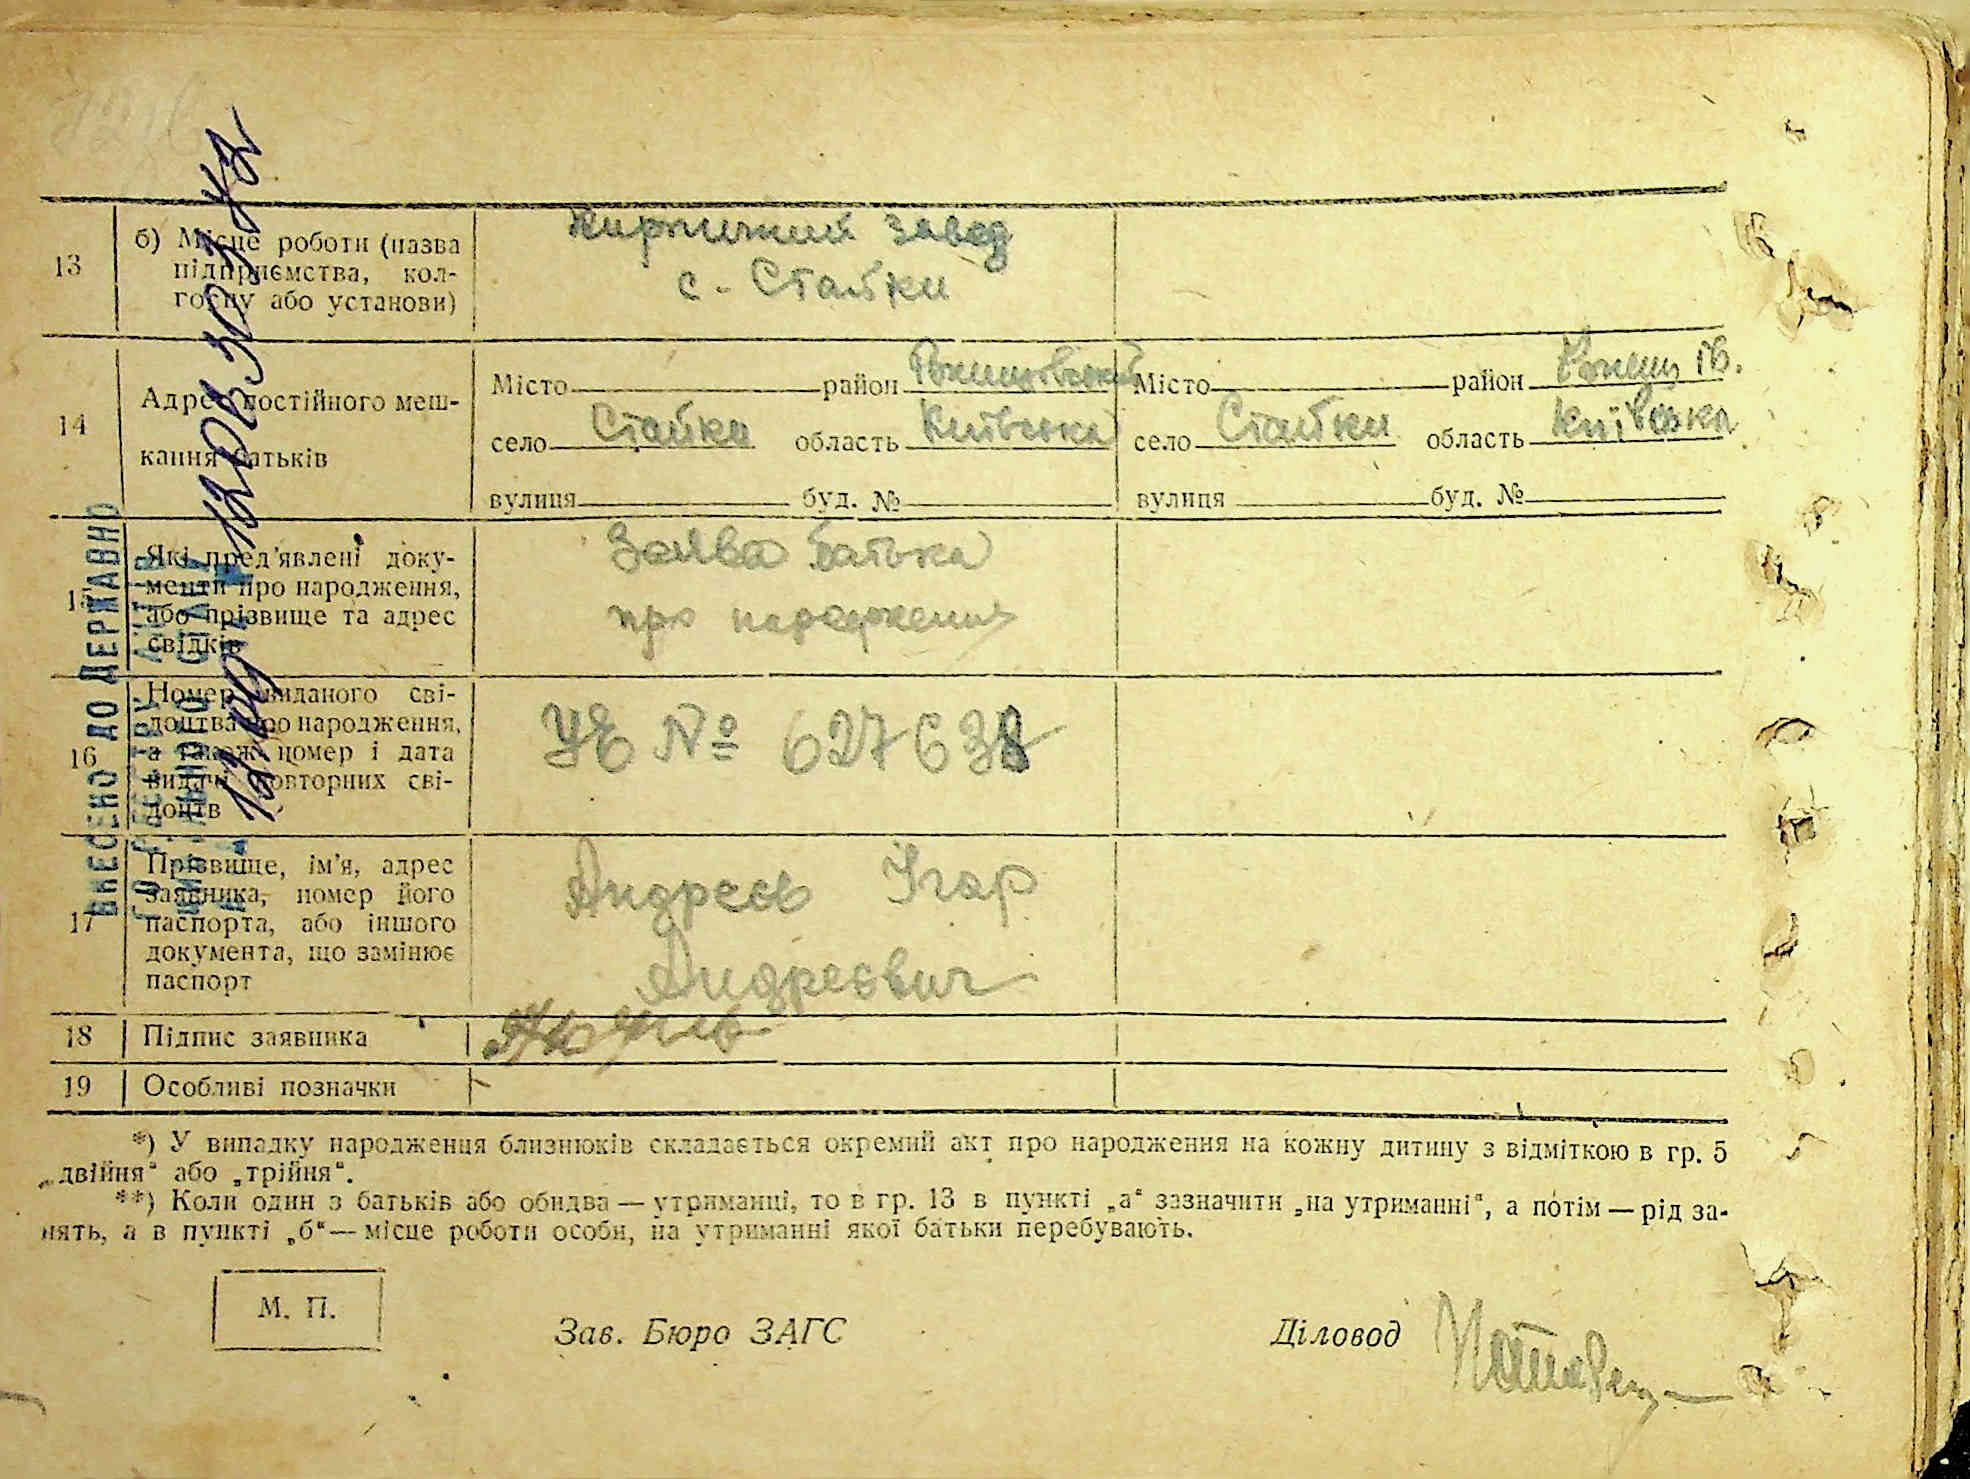 13
б) Місце роботи (назва
підприємства, кол-
госпу або установи)
Кирпичний завод
с. Стайки
14
Адрес постійного меш-
кання батьків
Місто район
село Стайки область Київська
вулиця буд. №
Місто район
село Стайки область Київська
вулиця буд. №
15
Які пред'явлені доку-
менти про народження,
або прізвище та адрес
свідків
Заява батька
про народження
16
Номер виданого сві-
доцтва про народження,
а також номер і дата
видачі повторних сві-
доцтв
УЕ № 627638
17
Прізвище, ім'я, адрес
заявника, номер його
паспорта, або іншого
документа, що замінює
паспорт
Андреєв Ігар
Андреєвич
18
Підпис заявника
19
Особливі позначки
*) У випадку народження близнюків складається окремий акт про народження на кожну дитину з відміткою в гр. 5
„двійня“ або „трійня“.
**) Коли один з батьків або обидва — утриманці, то в гр. 13 в пункті „а“ зазначити „на утриманні“, а потім — рід за-
нять, а в пункті „б“ — місце роботи особи, на утриманні якої батьки перебувають.
М. П.
Зав. Бюро ЗАГС
Діловод
ВНЕСЕНО ДО ДЕРЖАВНО